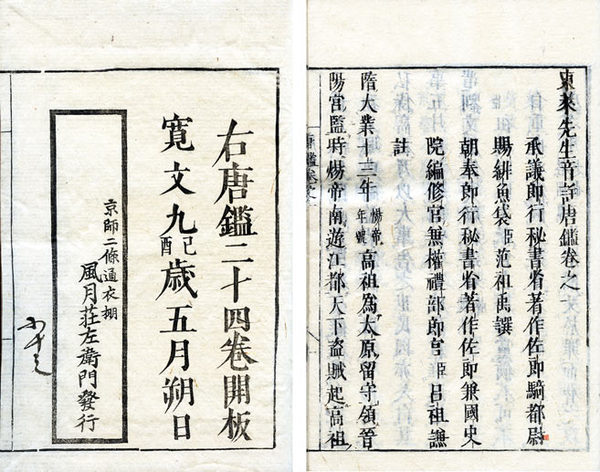 東萊先生音註唐鑑卷之
承議郎行秘書省著作佐郎騎都尉
賜緋魚袋臣范祖禹譔
朝奉郎行秘書省著作佐郎兼國史
院編修官兼權禮部郎官臣呂祖謙
註
隋大業十三年煬帝年號高祖為太原留守領晉
陽宮監時煬帝南遊江都天下盜賊起高祖
右唐鑑二十四卷開板
寛文九己酉歳五月朔日
京師二條通衣棚
風月莊左衛門發行